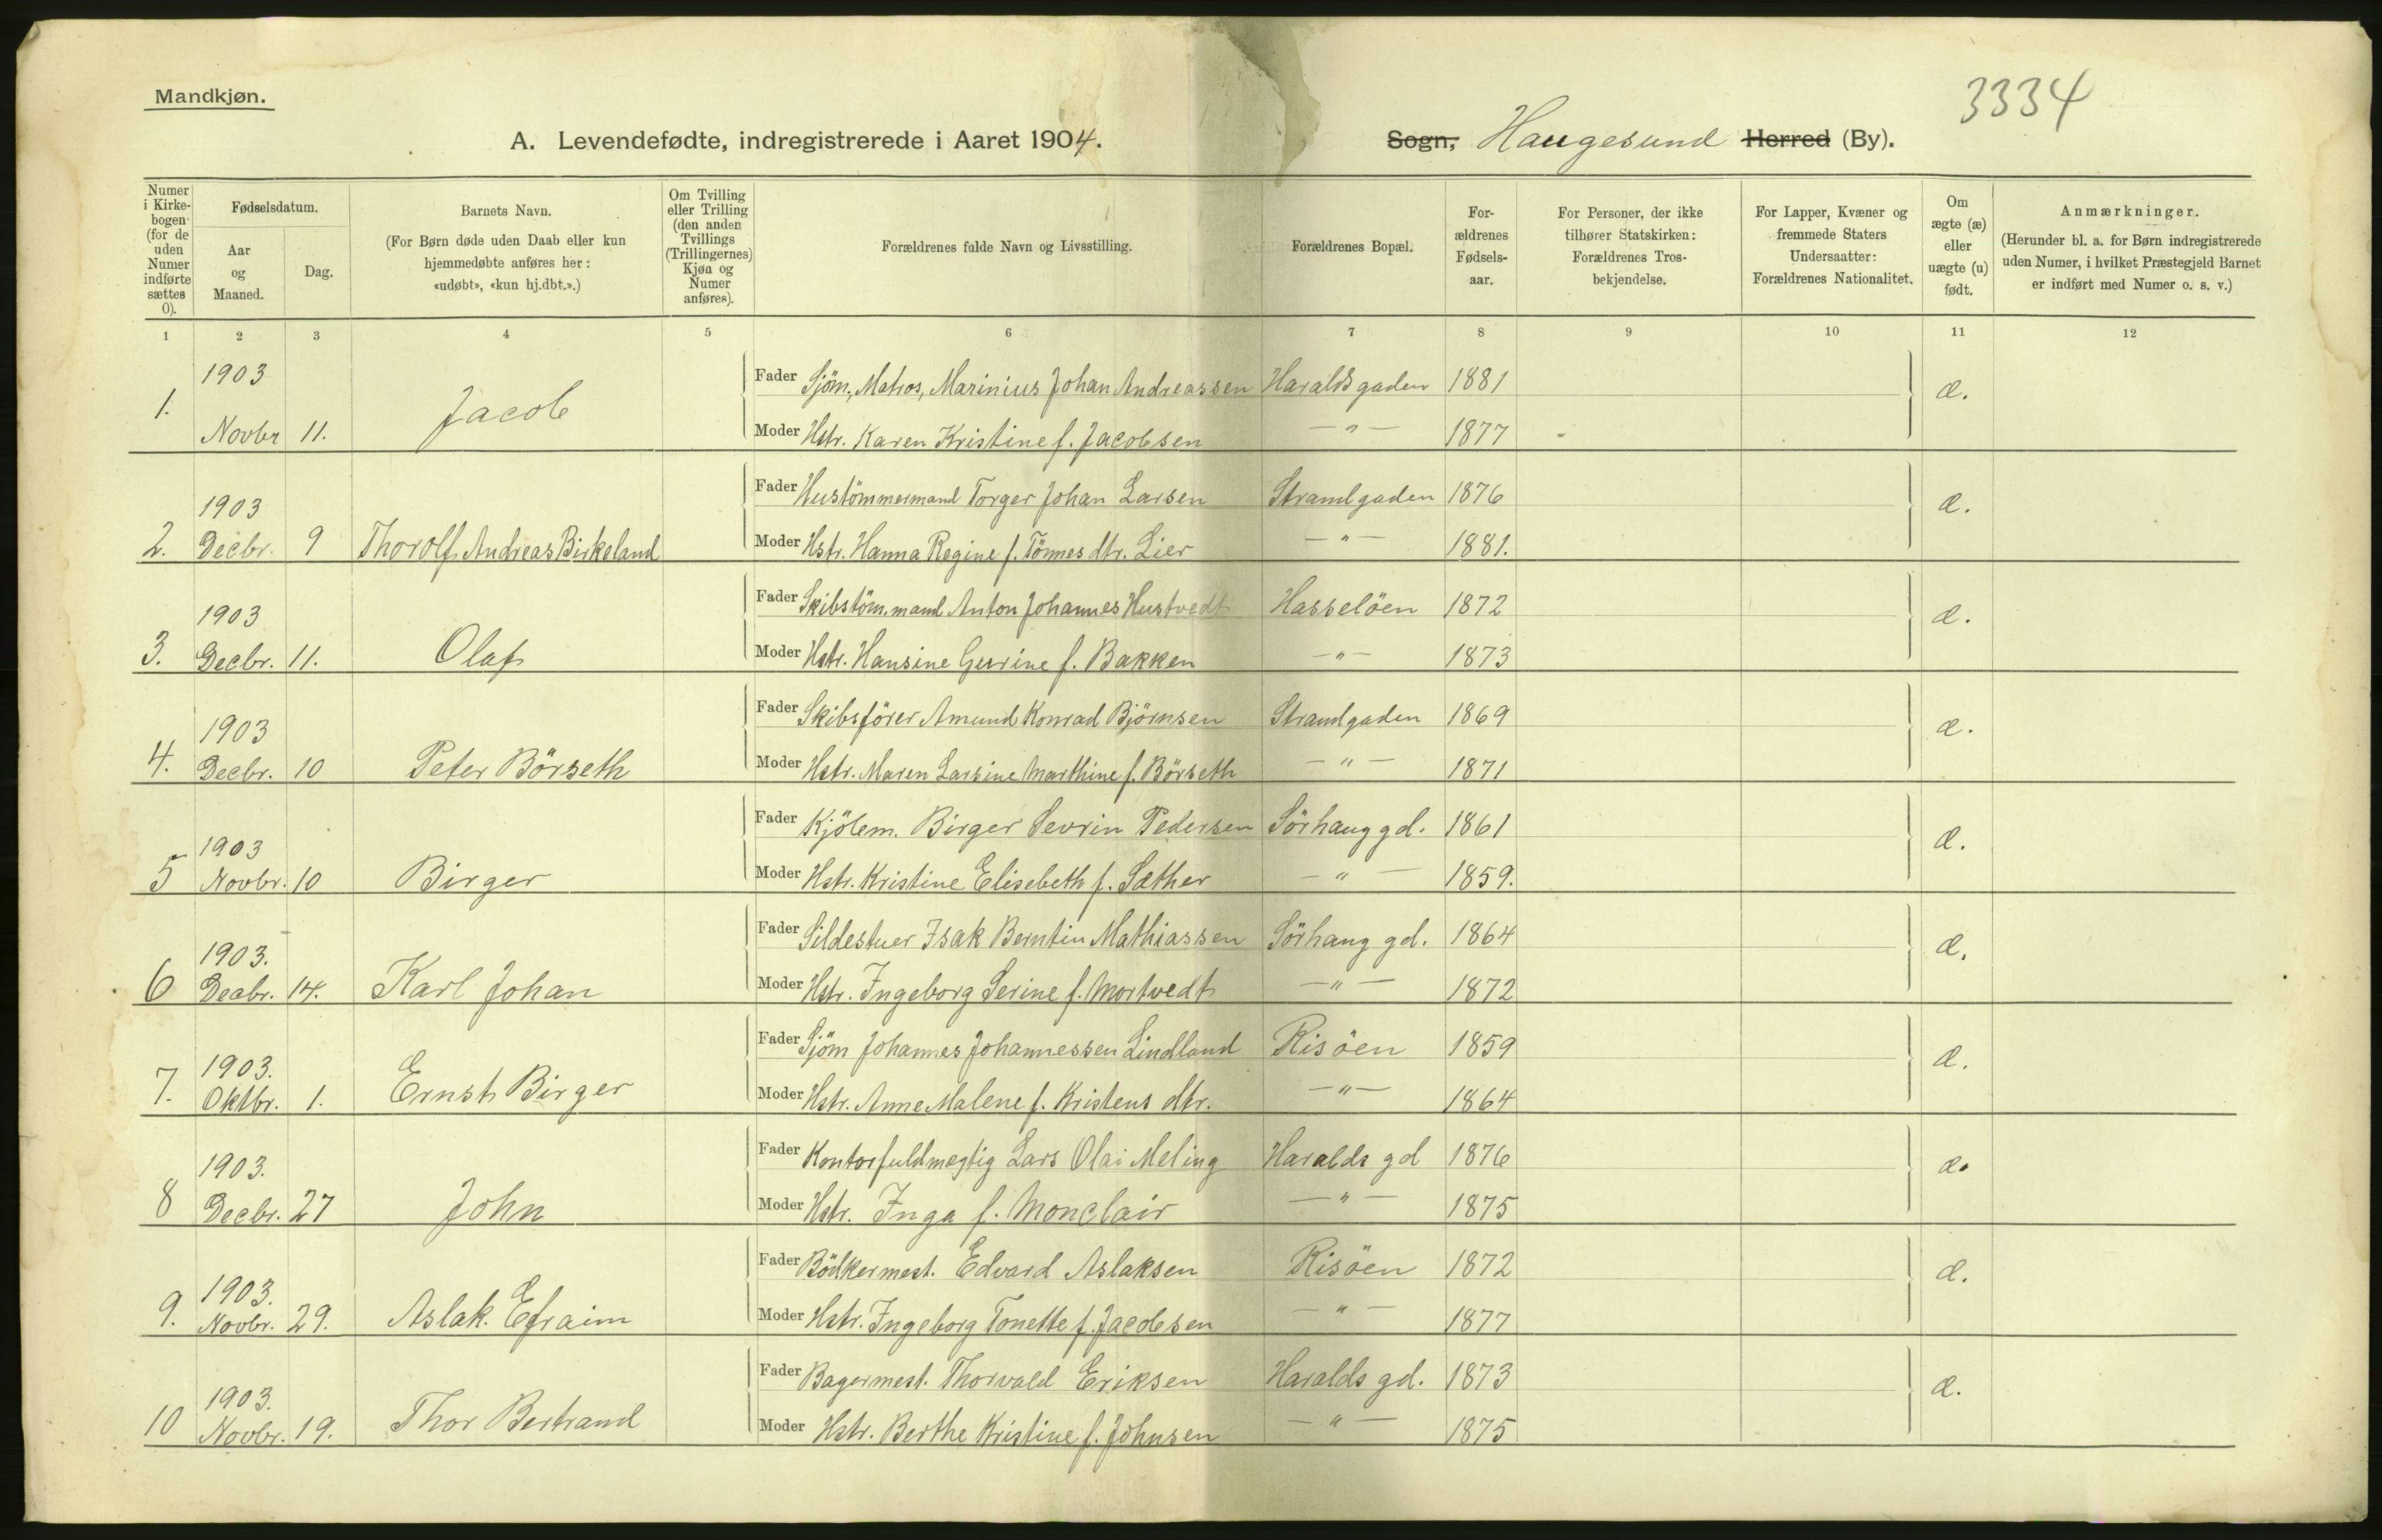 Mandkjøn.
3334
A. Levendefødte, indregistrerede i Aaret 1904.
Sogn, Haugesund Herred (By).
Numer i Kirke-bogen (for de uden Numer indførte sættes 0).
Fødselsdatum.
Aar og Maaned.
Dag.
Barnets Navn.
(For Børn døde uden Daab eller kun hjemmedøbte anføres her: «udøbt», «kun hj.dbt.».)
Om Tvilling eller Trilling (den anden Tvillings (Trillingernes) Kjøn og Numer anføres).
Forældrenes fulde Navn og Livsstilling.
Forældrenes Bopæl.
For-ældrenes Fødsels-aar.
For Personer, der ikke tilhører Statskirken: Forældrenes Tros-bekjendelse.
For Lapper, Kvæner og fremmede Staters Undersaatter: Forældrenes Nationalitet.
Om ægte (æ) eller uægte (u) født.
Anmærkninger.
(Herunder bl. a. for Børn indregistrerede uden Numer, i hvilket Præstegjeld Barnet er indført med Numer o. s. v.)
1 2 3 4 5 6 7 8 9 10 11 12
1903 Fader Sjöm., Matros, Marinius Johan Andreassen Haraldsgaden 1881 æ.
1. Novbr 11. Jacob Moder Hstr. Karen Kristine f. Jacobsen — " — 1877
1903 Fader Hustömmermand Torger Johan Larsen Strandgaden 1876 æ.
2. Decbr. 9 Thorolf Andreas Birkeland Moder Hstr. Hanna Regine f. Tönnes dtr. Lier — " — 1881.
1903 Fader Skibstöm.mand Anton Johannes Hustvedt Hasselöen 1872 æ.
3. Decbr. 11. Olaf Moder Hstr. Hansine Gurine f. Bakken — " — 1873
1903 Fader Skibsförer Amund Konrad Björnsen Strandgaden 1869 æ.
4. Decbr. 10 Peter Börseth Moder Hstr. Maren Larsine Marthine f. Börseth — " — 1871
1903 Fader Kjölem. Birger Sevrin Pedersen Sörhauggd. 1861 æ.
5 Novbr. 10 Birger Moder Hstr. Kristine Elisebeth f. Sæther — " — 1859.
1903. Fader Sildestuer Isak Berntin Mathiassen Sörhaug gd. 1864 æ.
6 Decbr. 14. Karl Johan Moder Hstr. Ingeborg Serine f. Mortvedt — " — 1872
1903. Fader Sjöm Johannes Johannessen Lindland Risöen 1859 æ.
7. Oktbr. 1. Ernst Birger Moder Hstr. Anne Malene f. Kristens dtr. — " — 1864
1903. Fader Kontorfuldmegtig Lars Olai Meling Haralds gd 1876 æ.
8 Decbr. 27 John Moder Hstr. Inga f. Monclair — " — 1875
1903. Fader Bödkermest. Edvard Aslaksen Risöen 1872 æ.
9. Novbr. 29. Aslak Efraim Moder Hstr. Ingeborg Tonette f. Jacobsen — " — 1877
1903. Fader Bagermest. Thorvald Eriksen Haralds gd. 1873 æ.
10 Novbr. 19. Thor Bertrand Moder Hstr. Berthe Kristine f. Johnsen — " — 1875